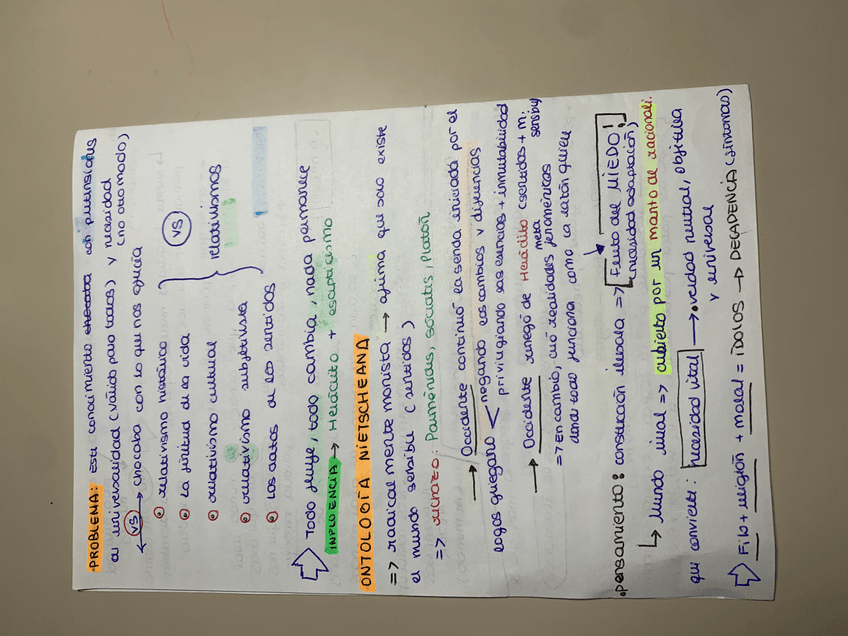 ·PROBLEMA: este conocimiento con pretensiones
de universalidad (válido para todos) y necesidad
(no otro modo)
(VS) → chocaba con lo que nos enfría
⊙ relativismo histórico
⊙ la finitud de la vida
⊙ relativismo cultural
⊙ relativismo subjetivista
⊙ los datos de los sentidos
(VS)
relativismos
⇨ Todo fluye, todo cambia, nada permanece
INFLUENCIA → Heráclito + escepticismo
ONTOLOGÍA NIETSCHEANA
=> radicalmente monista → afirma que solo existe
el mundo sensible (sentidos)
=> rechazo: Parménides, Sócrates, Platón
→ Occidente continuó la senda iniciada por el
logos griego < negando los cambios y diferencias
privilegiando las esencias + inmutabilidad
→ Occidente renegó de Heráclito (sentidos + m. sensible)
=> En cambio, creó realidades metafenoménicas
donde todo funciona como la razón quiere
·pensamiento: construcción ilusoria => Fruto del MIEDO!
(necesidad adaptación)
↳ Mundo irreal => cubierto por un manto de racionali.
que convierte: necesidad vital → verdad neutral, objetiva
y universal
⇨ Filo + religión + moral = ÍDOLOS → DECADENCIA (síntomas)